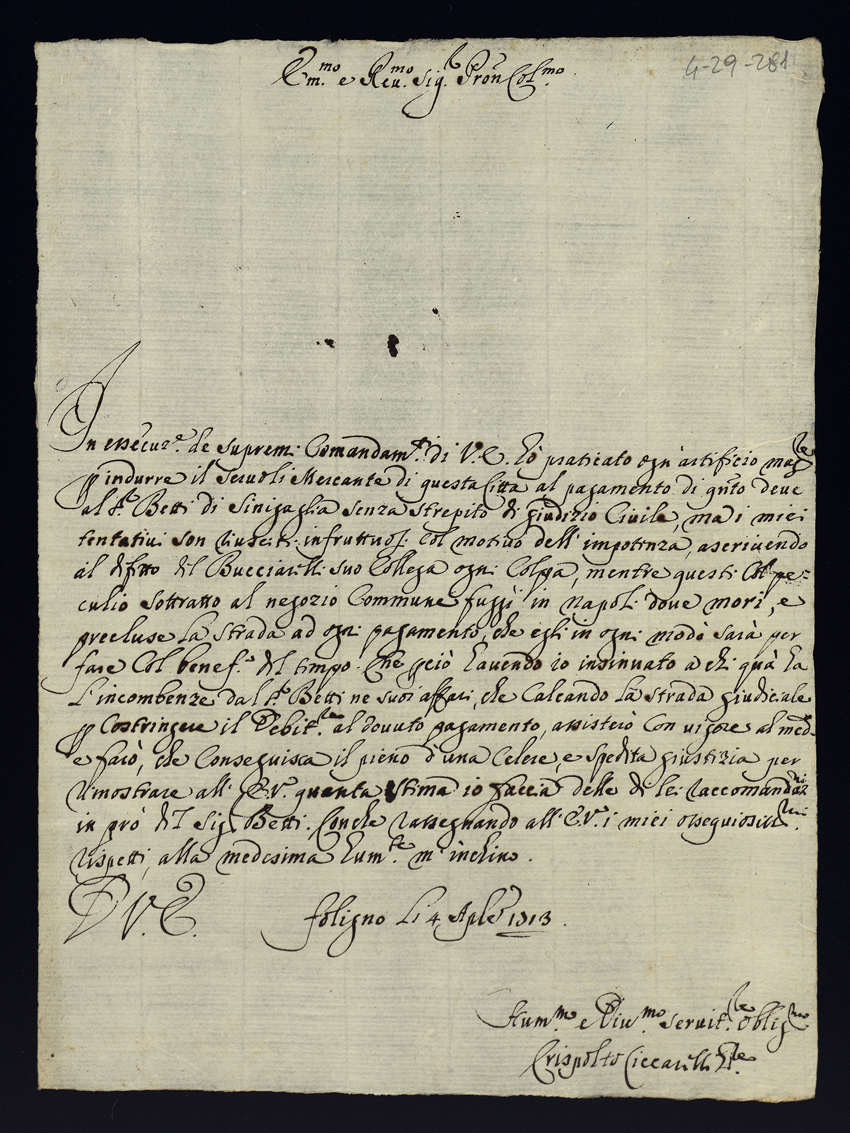 Em.mo e Reu.mo Sig.r Pron Col.mo
4-29-281
In essecuz.e de supremi Comandam.ti di V.E. hò praticato ogn'artificio mag.le
p indurre il Seruoli Mercante di questa Città al pagamento di q.nto deue
al S.r Betti di Sinigaglia senza strepito di giudizio Ciuile, ma i miei
tentatiui son riusciti infruttuosi col motiuo dell'impotenza, ascriuendo
al difetto del Bucciarelli suo Collega ogni Colpa, mentre questi Col pe=
culio sottratto al negozio Commune fuggì in Napoli doue morì, e
precluse la strada ad ogni pagamento, che egli in ogni modo sarià per
fare Col benef.o del tempo. Che p ciò hauendo io insinuato a chi quà ha
l'incombenze dal S.r Betti ne suoi affari, che Calcando la strada giudiciale
p Costringere il Debit.re al douuto pagamento, assisterò Con vigore al med.o
e farò, che Conseguisca il pieno d'una Celere, e spedita giustizia per
dimostrare all' E.V. quanta stima io faccia delle di lei raccomandaz.ni
in prò del Sig.r Betti. Con che rassegnando all' E.V. i miei ossequiosiss.mi
rispetti, alla medesima hum.te m'inchino.
D V. E.
foligno li 4 Aple 1713.
Hum.mo e Diu.mo seruit.re oblig.mo
Crispolto Ciccarelli